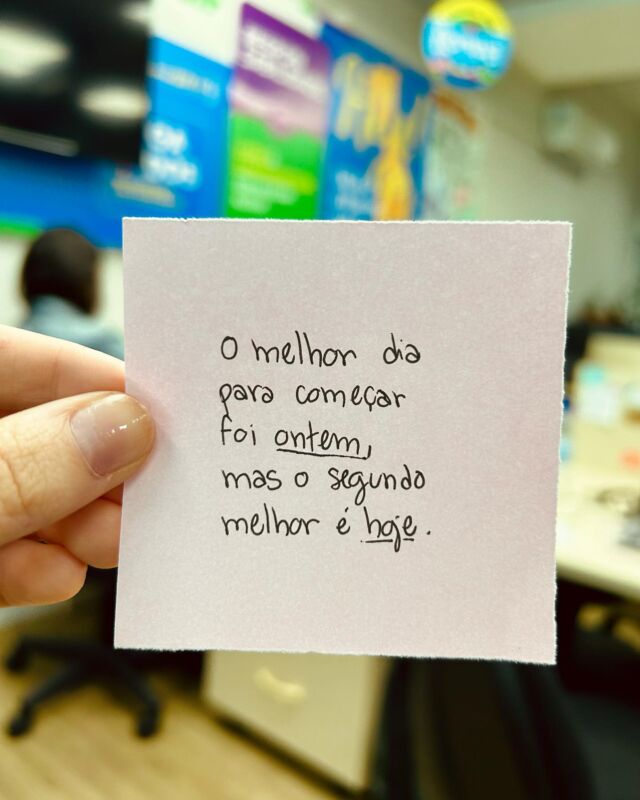 O melhor dia
para começar
foi ontem,
mas o segundo
melhor é hoje.